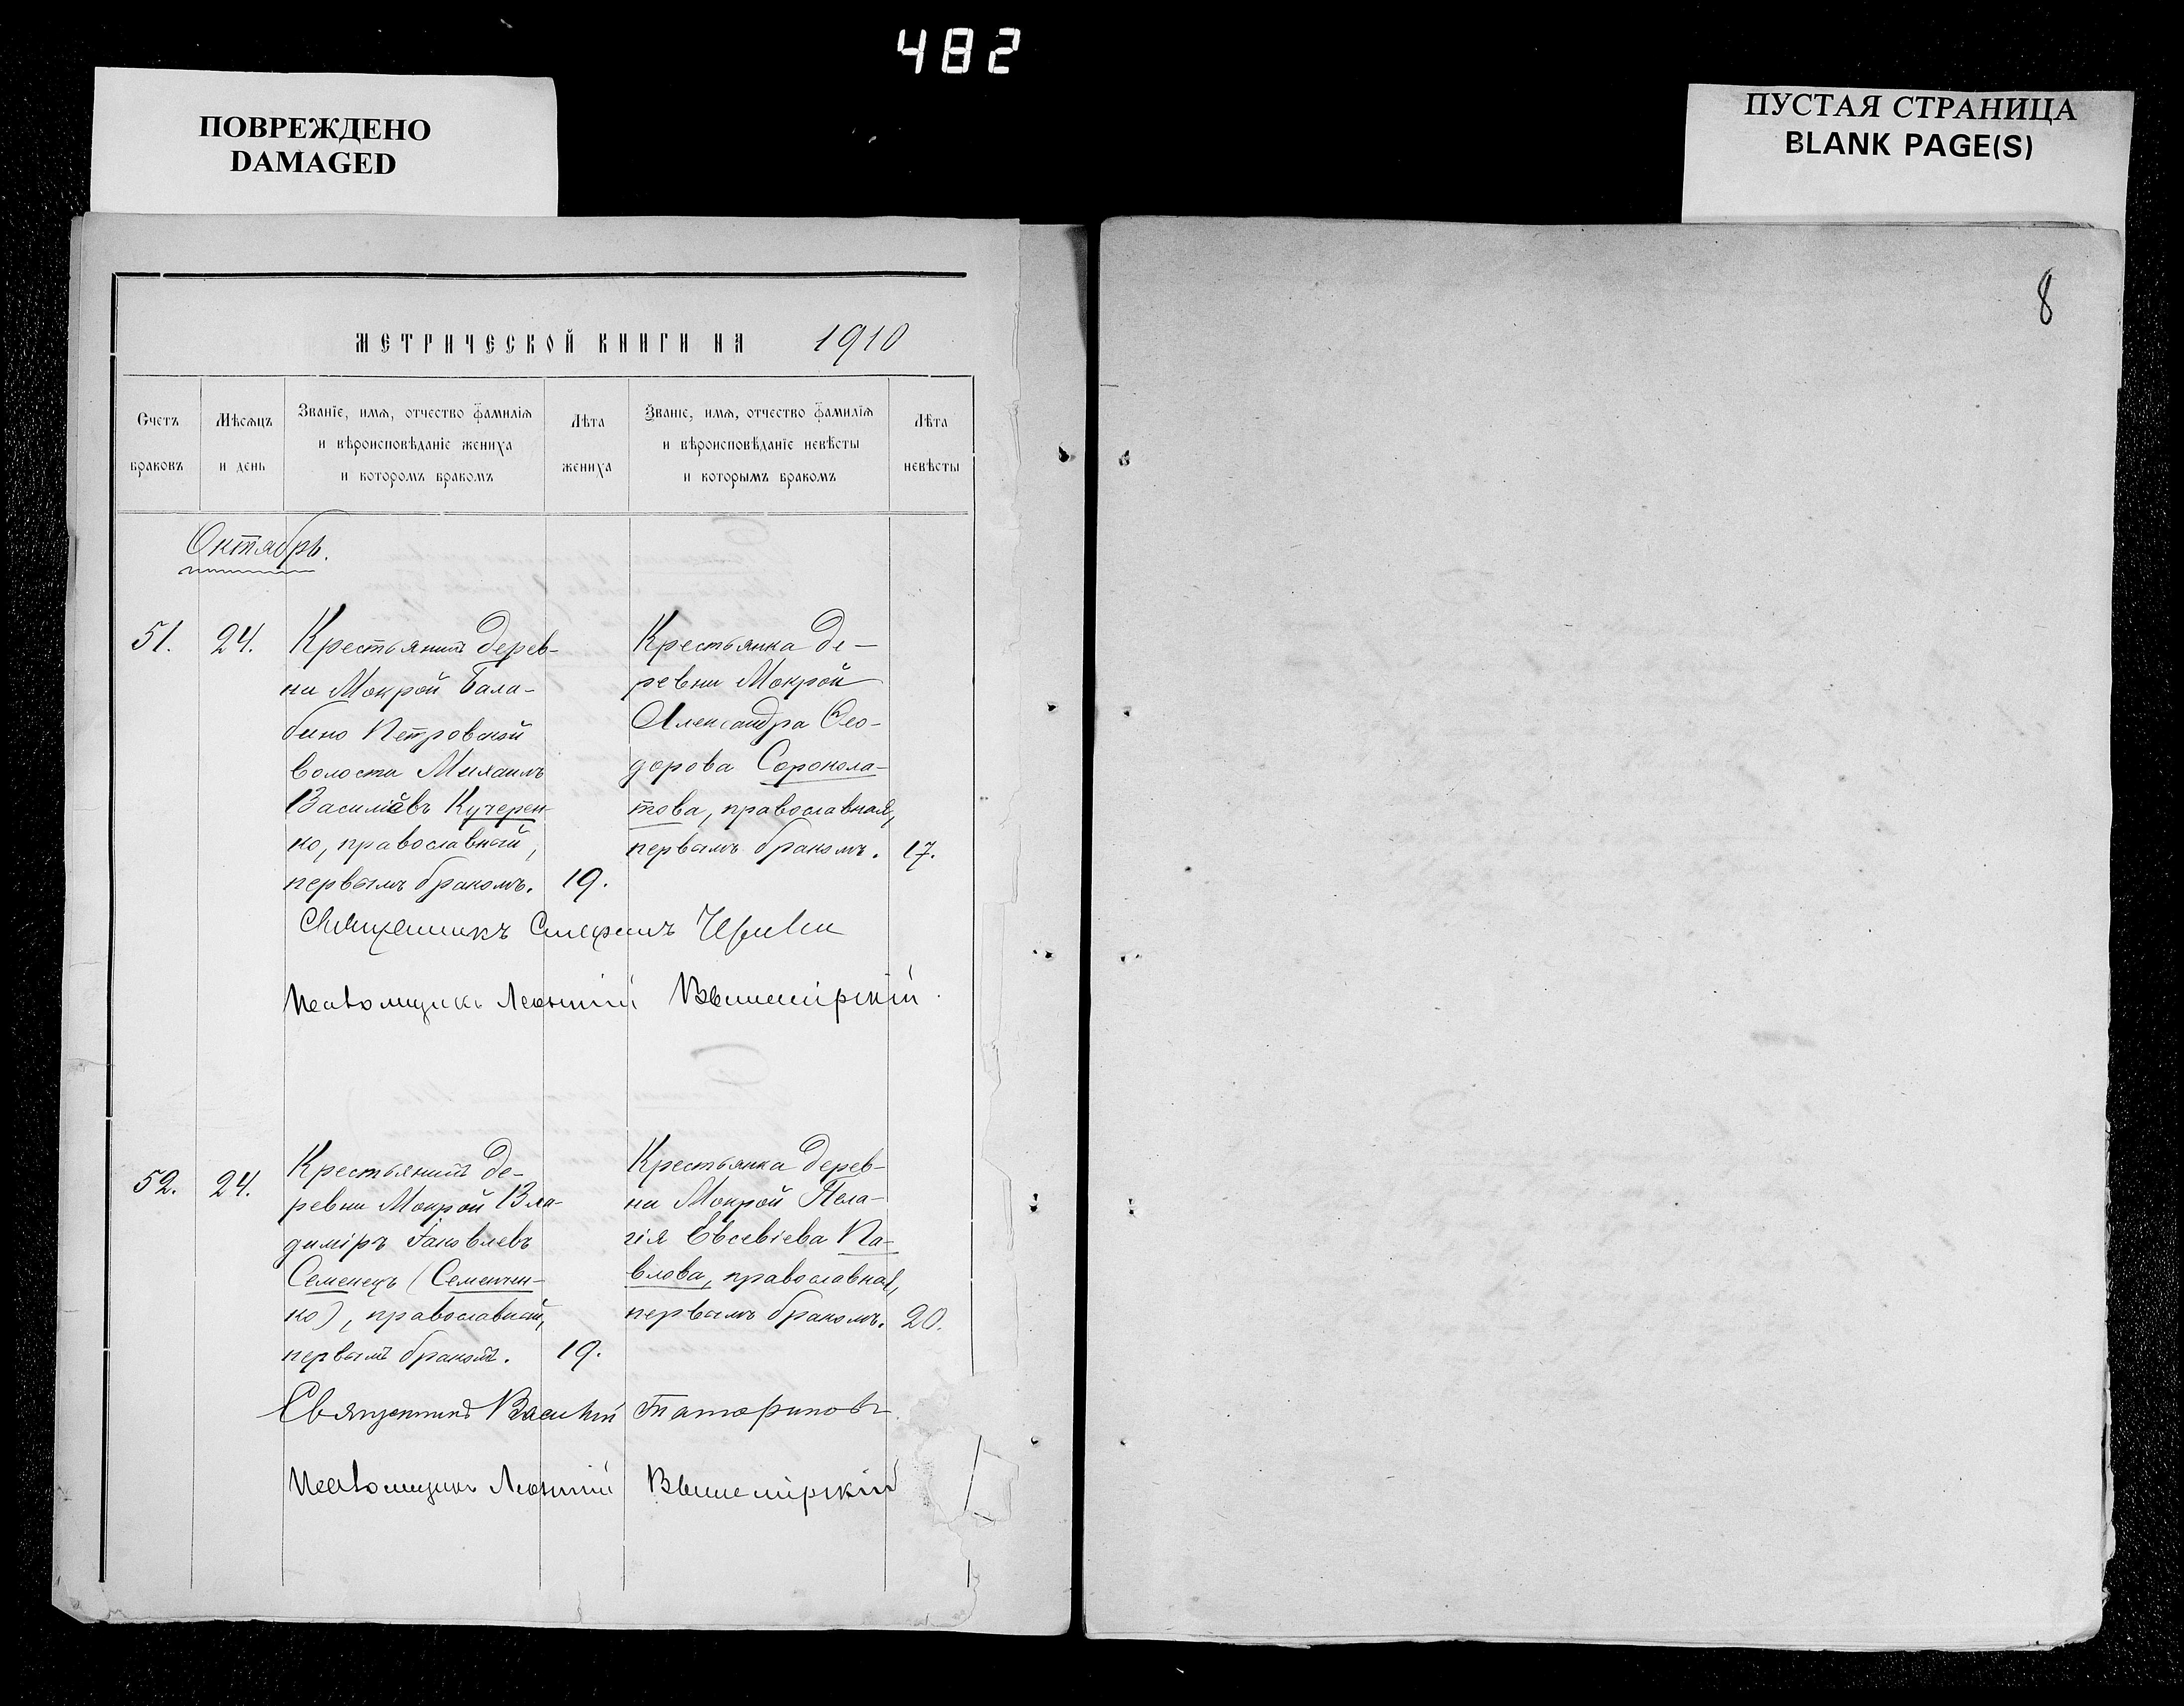 482
ПОВРЕЖДЕНО
DAMAGED
ПУСТАЯ СТРАНИЦА
BLANK PAGE(S)
8
МЕТРИЧЕСКОЙ КНИГИ НА 1910
Счетъ браковъ
Мѣсяцъ и день
Званіе, имя, отчество фамилія
и вѣроисповѣданіе жениха
и которомъ бракомъ
Лѣта жениха
Званіе, имя, отчество фамилія
и вѣроисповѣданіе невѣсты
и которымъ бракомъ
Лѣта невѣсты
Октябрь.
51. 24.
Крестьянинъ дерев-
ни Мокрой Бала-
бино Петровской
волости Михаилъ
Василіевъ Кучерен-
ко, православный,
первымъ бракомъ. 19.
Крестьянка де-
ревни Мокрой
Александра Ѳео-
дорова Сорокола-
това, православная,
первымъ бракомъ. 17.
Священникъ Стефанъ
Псаломщикъ Леонтій Вышемірскій.
52. 24.
Крестьянинъ де-
ревни Мокрой Вла-
диміръ Іаковлевъ
Семенецъ (Семенчен-
ко), православный,
первымъ бракомъ. 19.
Крестьянка дерев-
ни Мокрой Пела-
гія Евсевіева Па-
влова, православная,
первымъ бракомъ. 20.
Священникъ Василій Татариновъ
Псаломщикъ Леонтій Вышемірскій